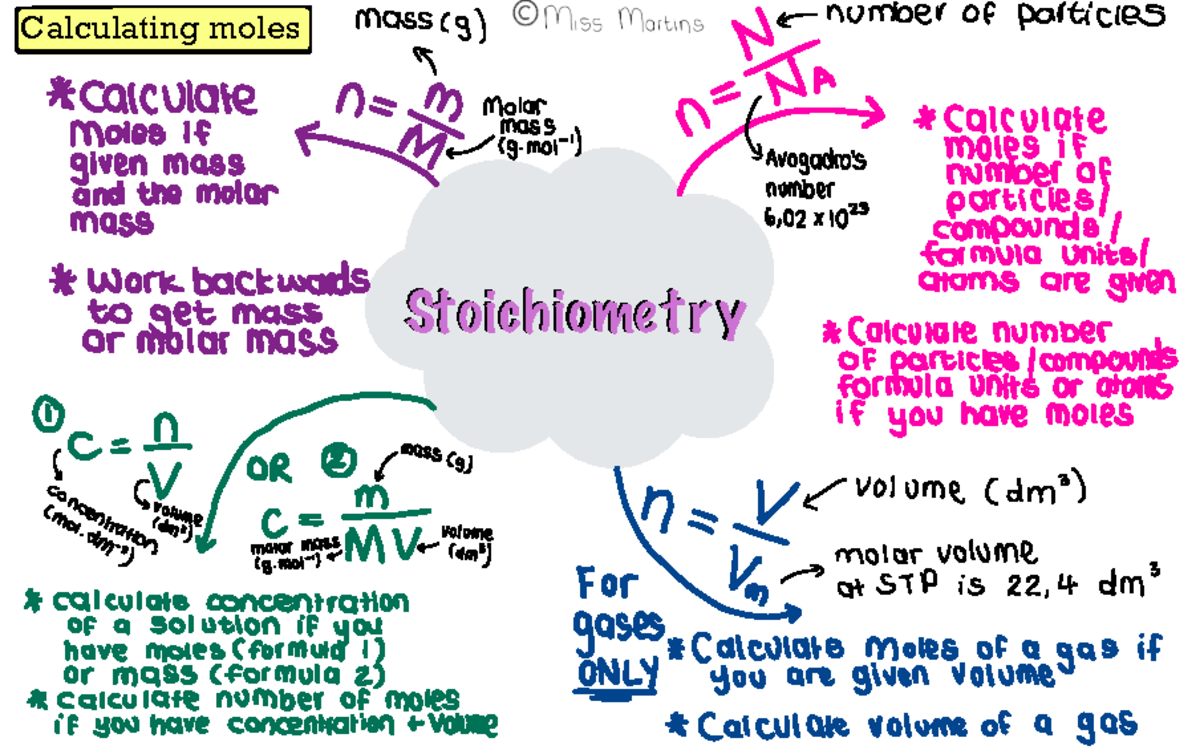 Calculating moles
mass (g)
© Miss Martins
number of particles
n = m / M
Molar
mass
(g·mol⁻¹)
* Calculate
moles if
given mass
and the molar
mass
* Work backwards
to get mass
or molar mass
n = N / NA
Avogadro's
number
6,02 x 10²³
* Calculate
moles if
number of
particles/
compounds/
formula units/
atoms are given
* Calculate number
of particles/compounds
formula units or atoms
if you have moles
Stoichiometry
① c = n / V
concentration
(mol·dm⁻³)
volume
(dm³)
OR ②
mass (g)
c = m / MV
molar mass
(g·mol⁻¹)
volume
(dm³)
* calculate concentration
of a solution if you
have moles (formula 1)
or mass (formula 2)
* calculate number of moles
if you have concentration + volume
n = V / Vm
volume (dm³)
molar volume
at STP is 22,4 dm³
For
gases
ONLY
* Calculate moles of a gas if
you are given volume
* Calculate volume of a gas